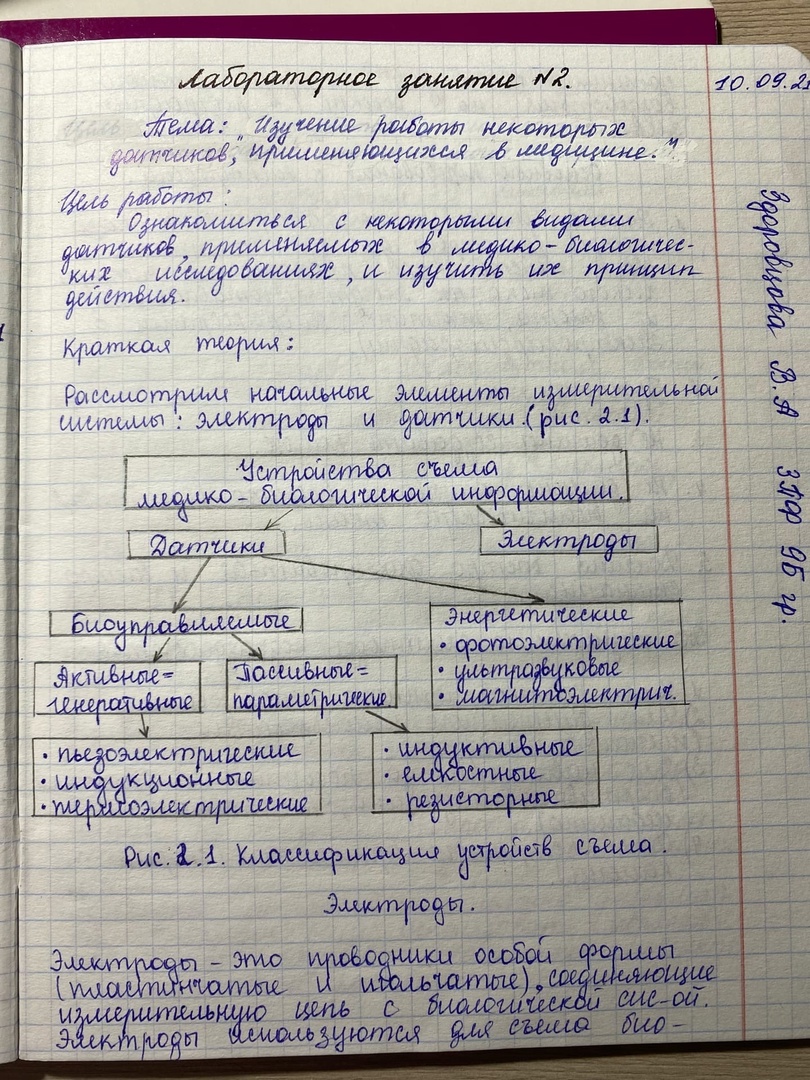 Лабораторное занятие №2.
10.09.21
Тема: „Изучение работы некоторых
датчиков, применяющихся в медицине."
Цель работы:
Ознакомиться с некоторыми видами
датчиков, применяемых в медико-биологичес-
ких исследованиях, и изучить их принцип
действия.
Краткая теория:
Рассмотрим начальные элементы измерительной
системы: электроды и датчики.(рис. 2.1).
Устройства съема
медико-биологической информации.
Датчики
Электроды
Биоуправляемые
Энергетические
• фотоэлектрические
• ультразвуковые
• магнитоэлектрич.
Активные=
генеративные
Пассивные=
параметрические
• пьезоэлектрические
• индукционные
• термоэлектрические
• индуктивные
• емкостные
• резисторные
Рис. 2.1. Классификация устройств съема.
Электроды.
Электроды – это проводники особой формы
(пластинчатые и игольчатые), соединяющие
измерительную цепь с биологической сис-ой.
Электроды используются для съема био-
Здоровцова В.А ЗПФ 9Б гр.